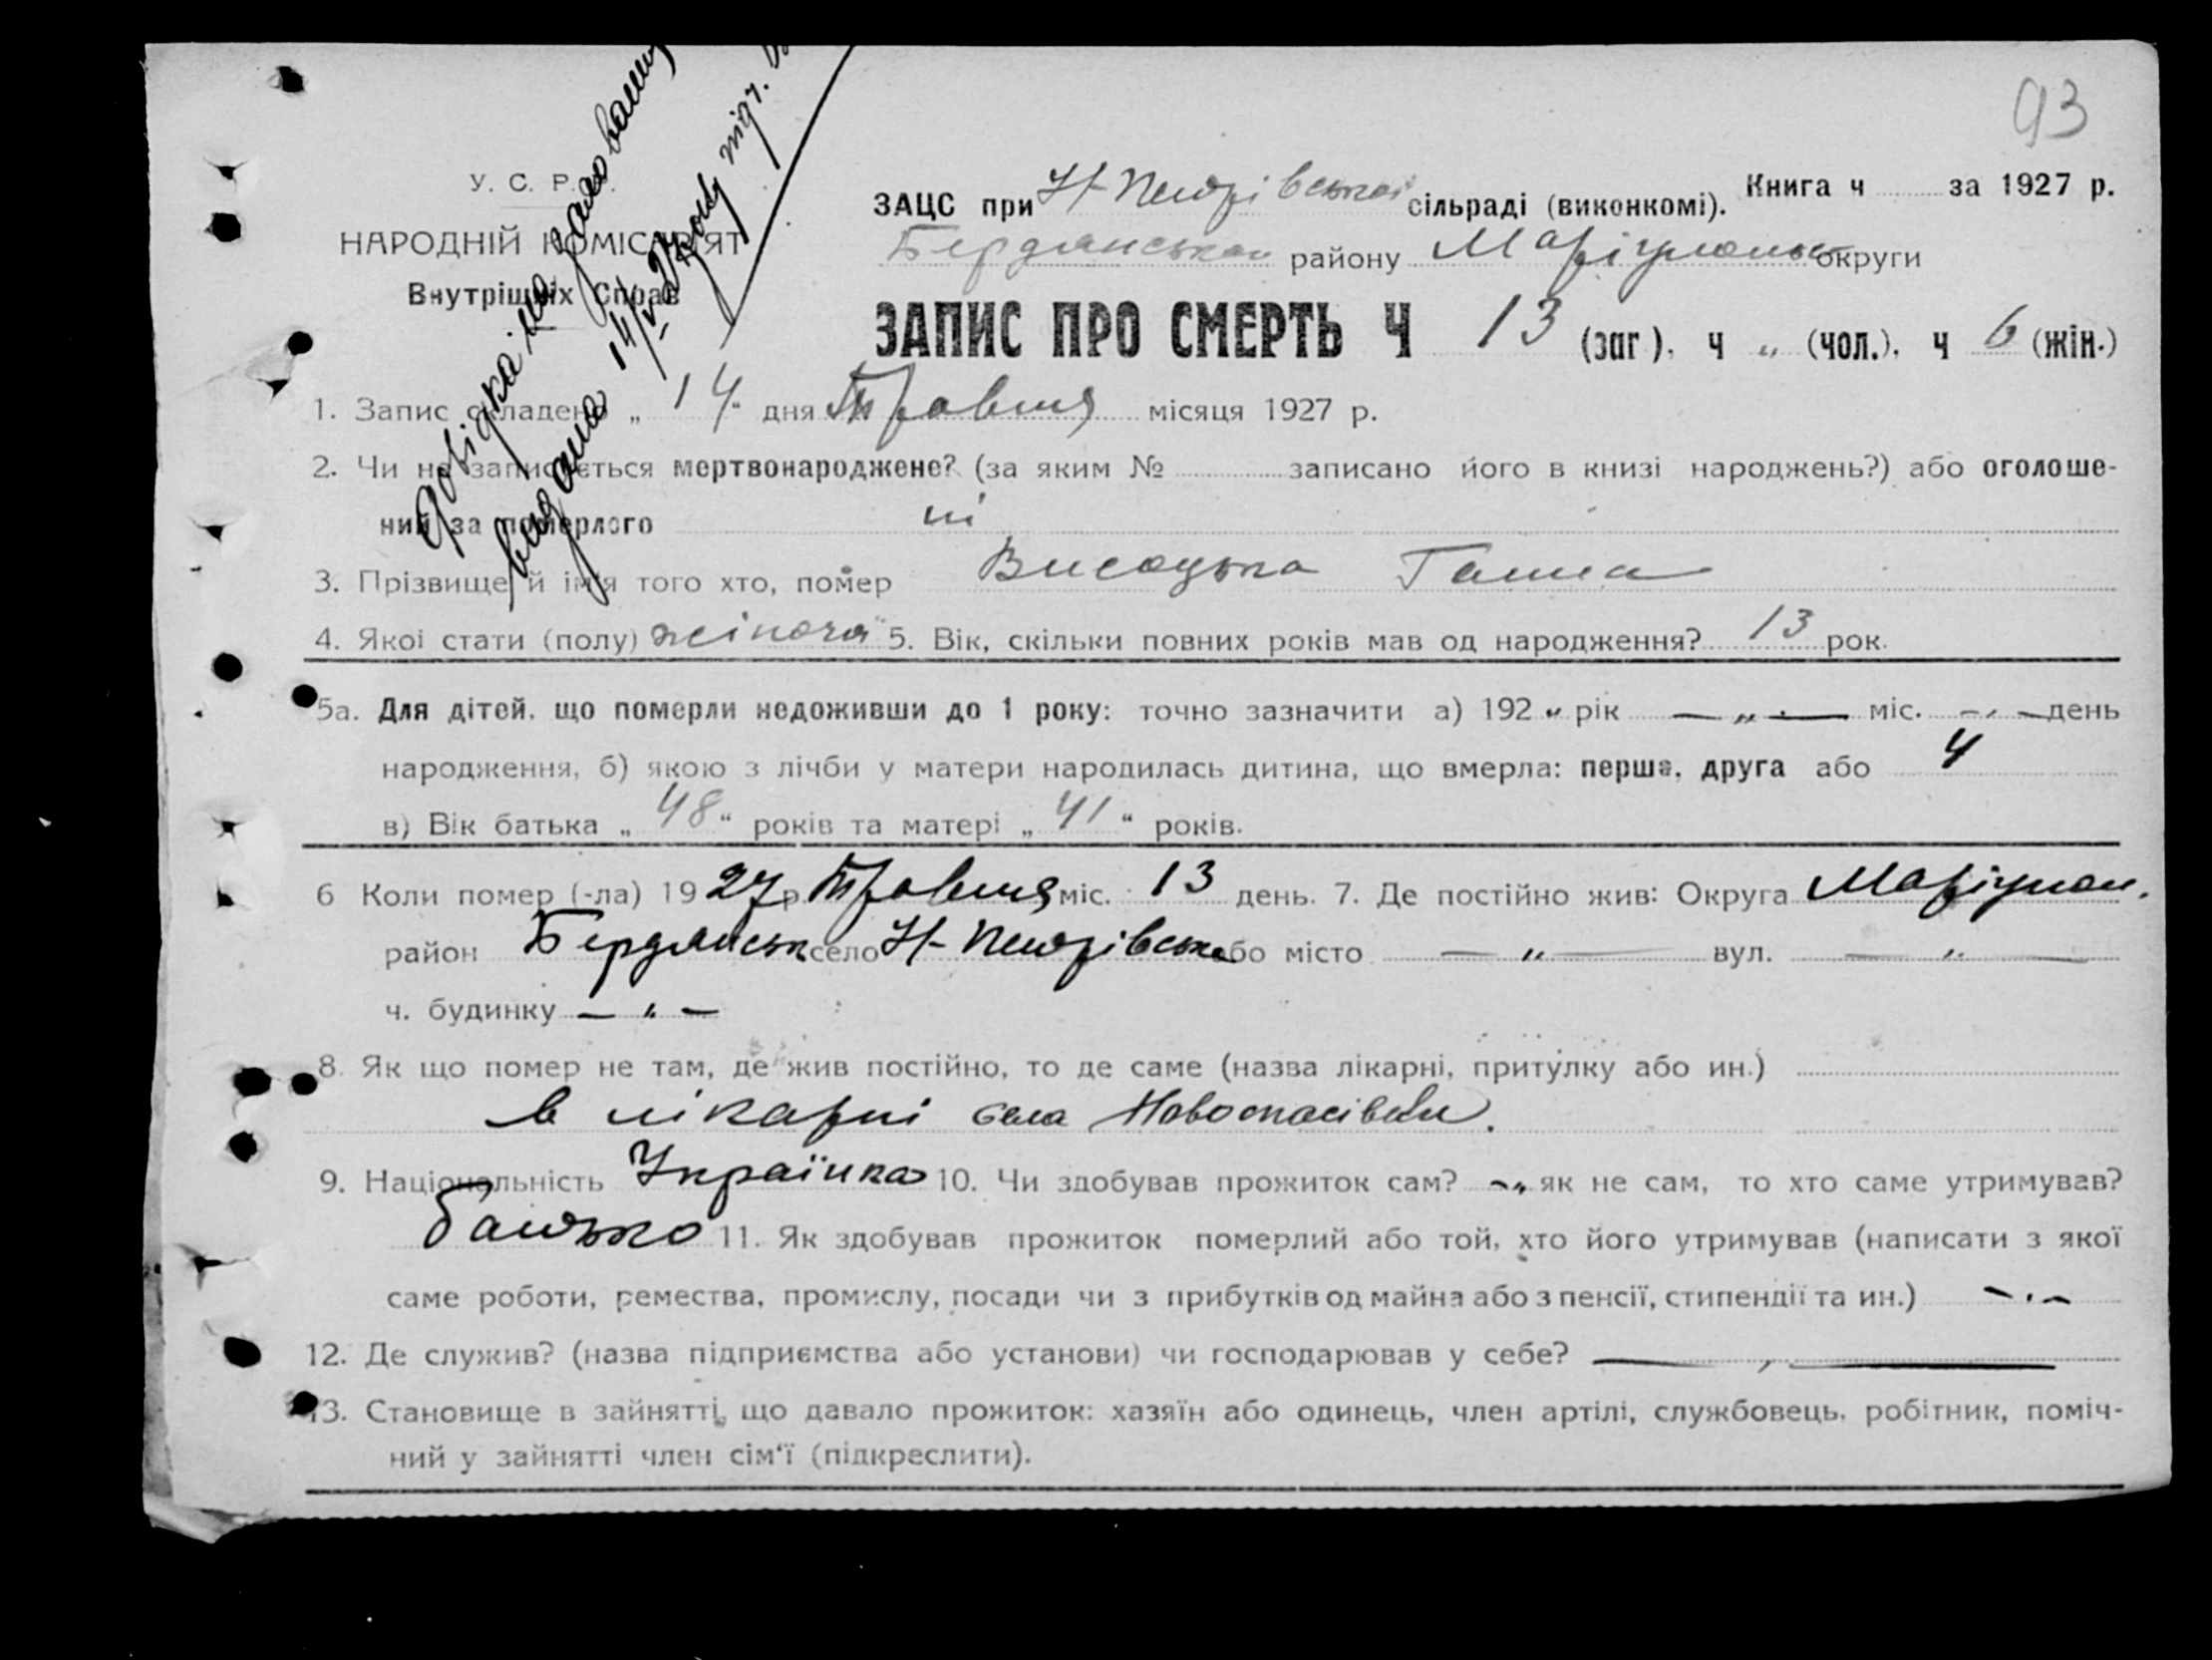 93
У. С. Р. Р.
НАРОДНІЙ КОМІСАРІЯТ
Внутрішніх Справ
Довідка на заховання
видана 14/V-27 року підч.
ЗАЦС при Н-Петрівської сільраді (виконкомі). Книга ч за 1927 р.
Бердянського району Маріупольс округи
ЗАПИС ПРО СМЕРТЬ Ч 13 (заг.), ч „ (чол.), ч 6 (жін.)
1. Запис складено „ 14 " дня Травня місяця 1927 р.
2. Чи не записується мертвонароджене? (за яким № записано його в книзі народжень?) або оголоше-
ний за померлого ні
3. Прізвище й ім'я того хто, помер Висоцька Ганна
4. Якоі стати (полу) жіноча 5. Вік, скільки повних років мав од народження? 13 рок.
5а. Для дітей, що померли недоживши до 1 року: точно зазначити а) 192 „ рік — „ — міс. — „ — день
народження, б) якою з лічби у матери народилась дитина, що вмерла: перша, друга або 4
в) Вік батька „ 48 " років та матері „ 41 " років.
6 Коли помер (-ла) 1927 р. Травня міс. 13 день. 7. Де постійно жив: Округа Маріупол.
район Бердянськ село Н-Петрівська або місто — „ — вул. — „ —
ч. будинку — „ —
8. Як що помер не там, де жив постійно, то де саме (назва лікарні, притулку або ин.)
в лікарні села Новоспасівки.
9. Національність Українка 10. Чи здобував прожиток сам? -„ як не сам, то хто саме утримував?
батько 11. Як здобував прожиток померлий або той, хто його утримував (написати з якої
саме роботи, ремества, промислу, посади чи з прибутків од майна або з пенсії, стипендії та ин.) - „ -
12. Де служив? (назва підприємства або установи) чи господарював у себе? — „ —
13. Становище в зайнятті, що давало прожиток: хазяїн або одинець, член артілі, службовець, робітник, поміч-
ний у зайнятті член сім'ї (підкреслити).